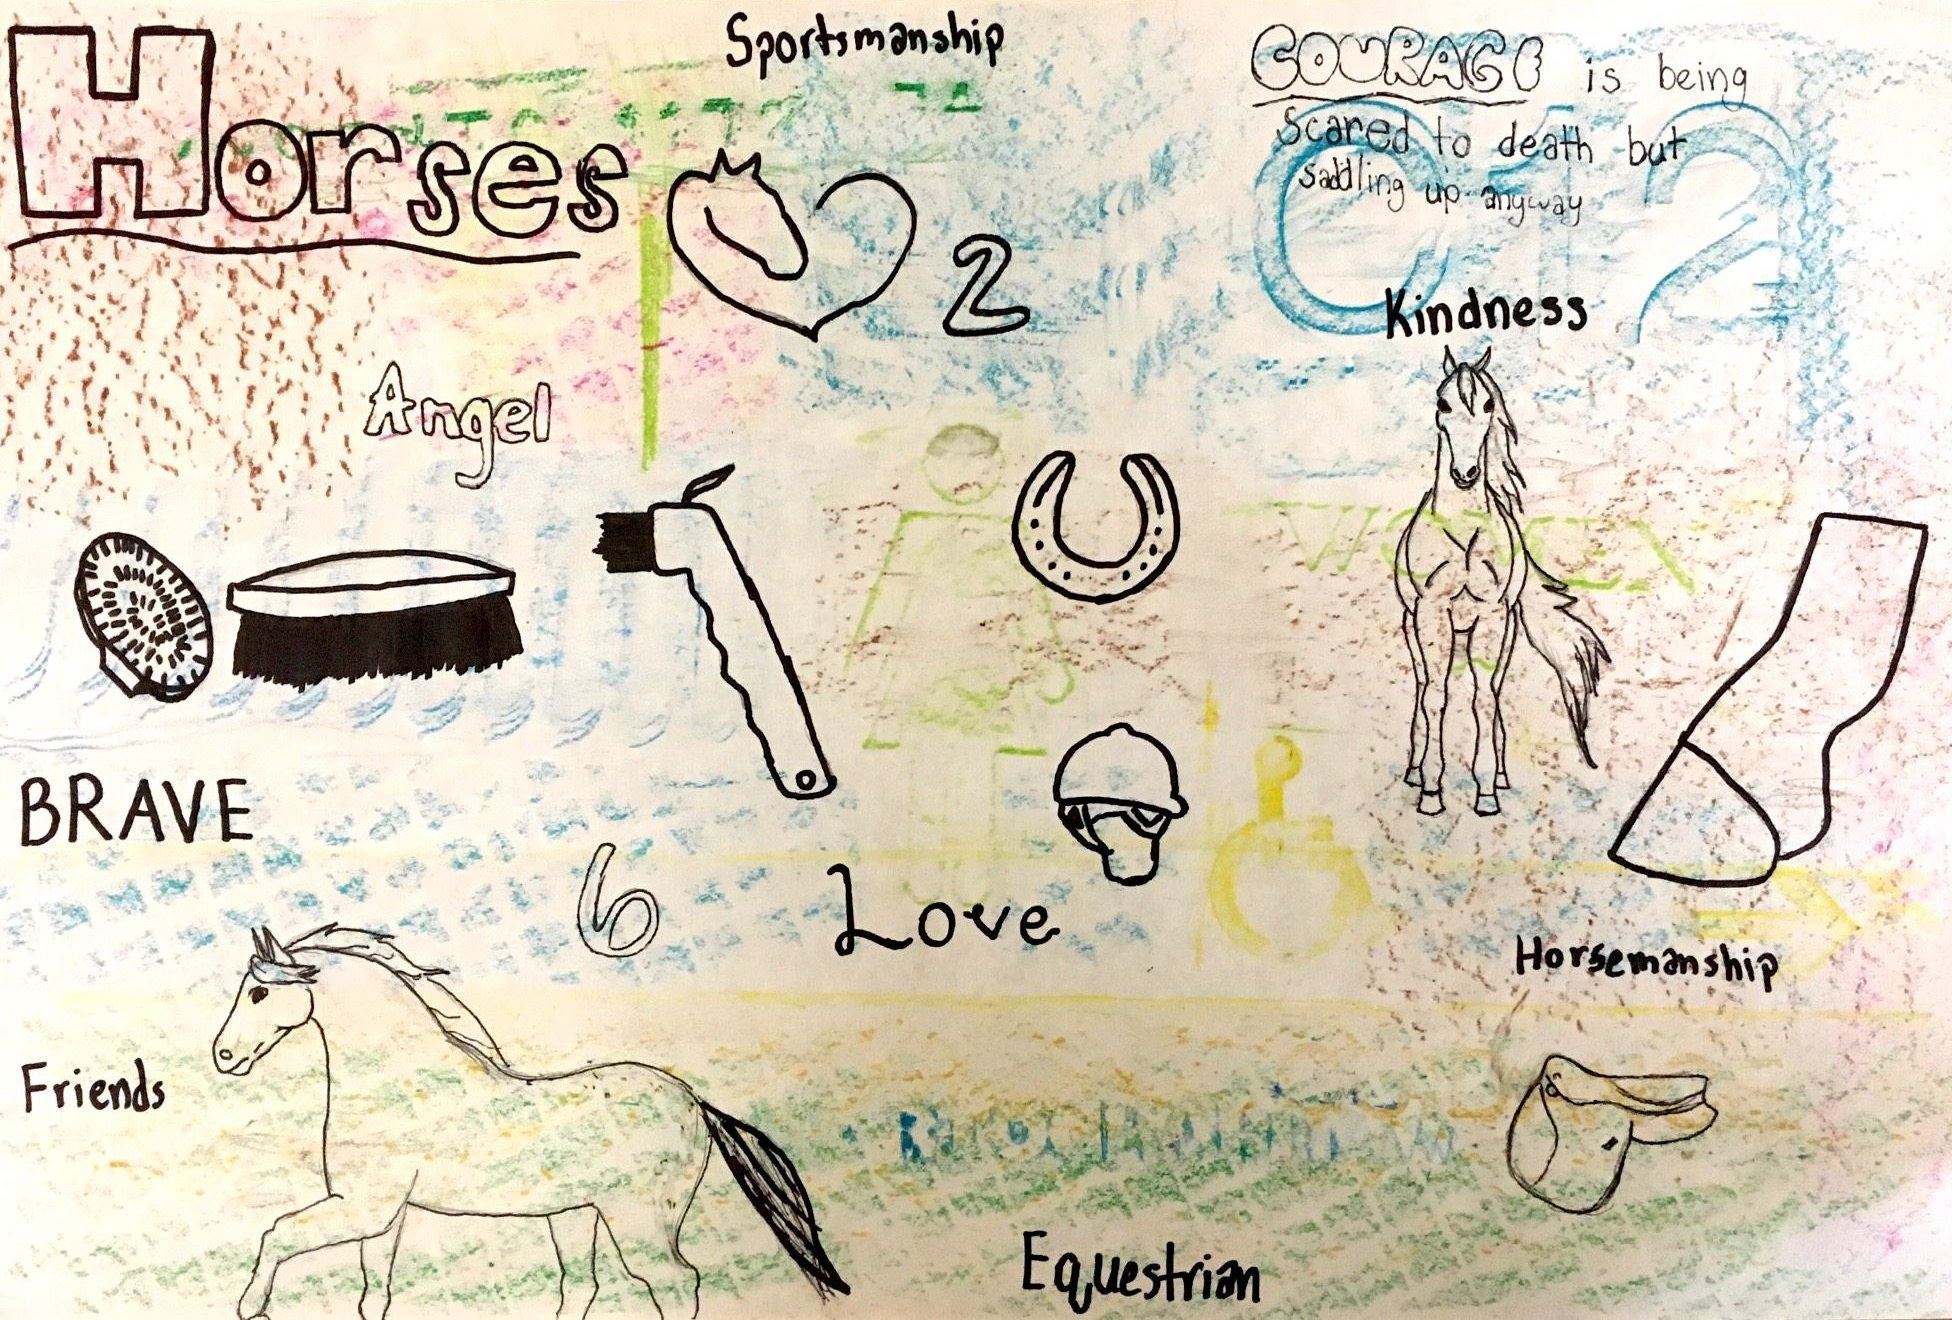 Sportsmanship
COURAGE is being
Scared to death but
saddling up anyway
Horses
2
C12
Kindness
Angel
WOMEN
BRAVE
6
Love
Horsemanship
Friends
Equestrian